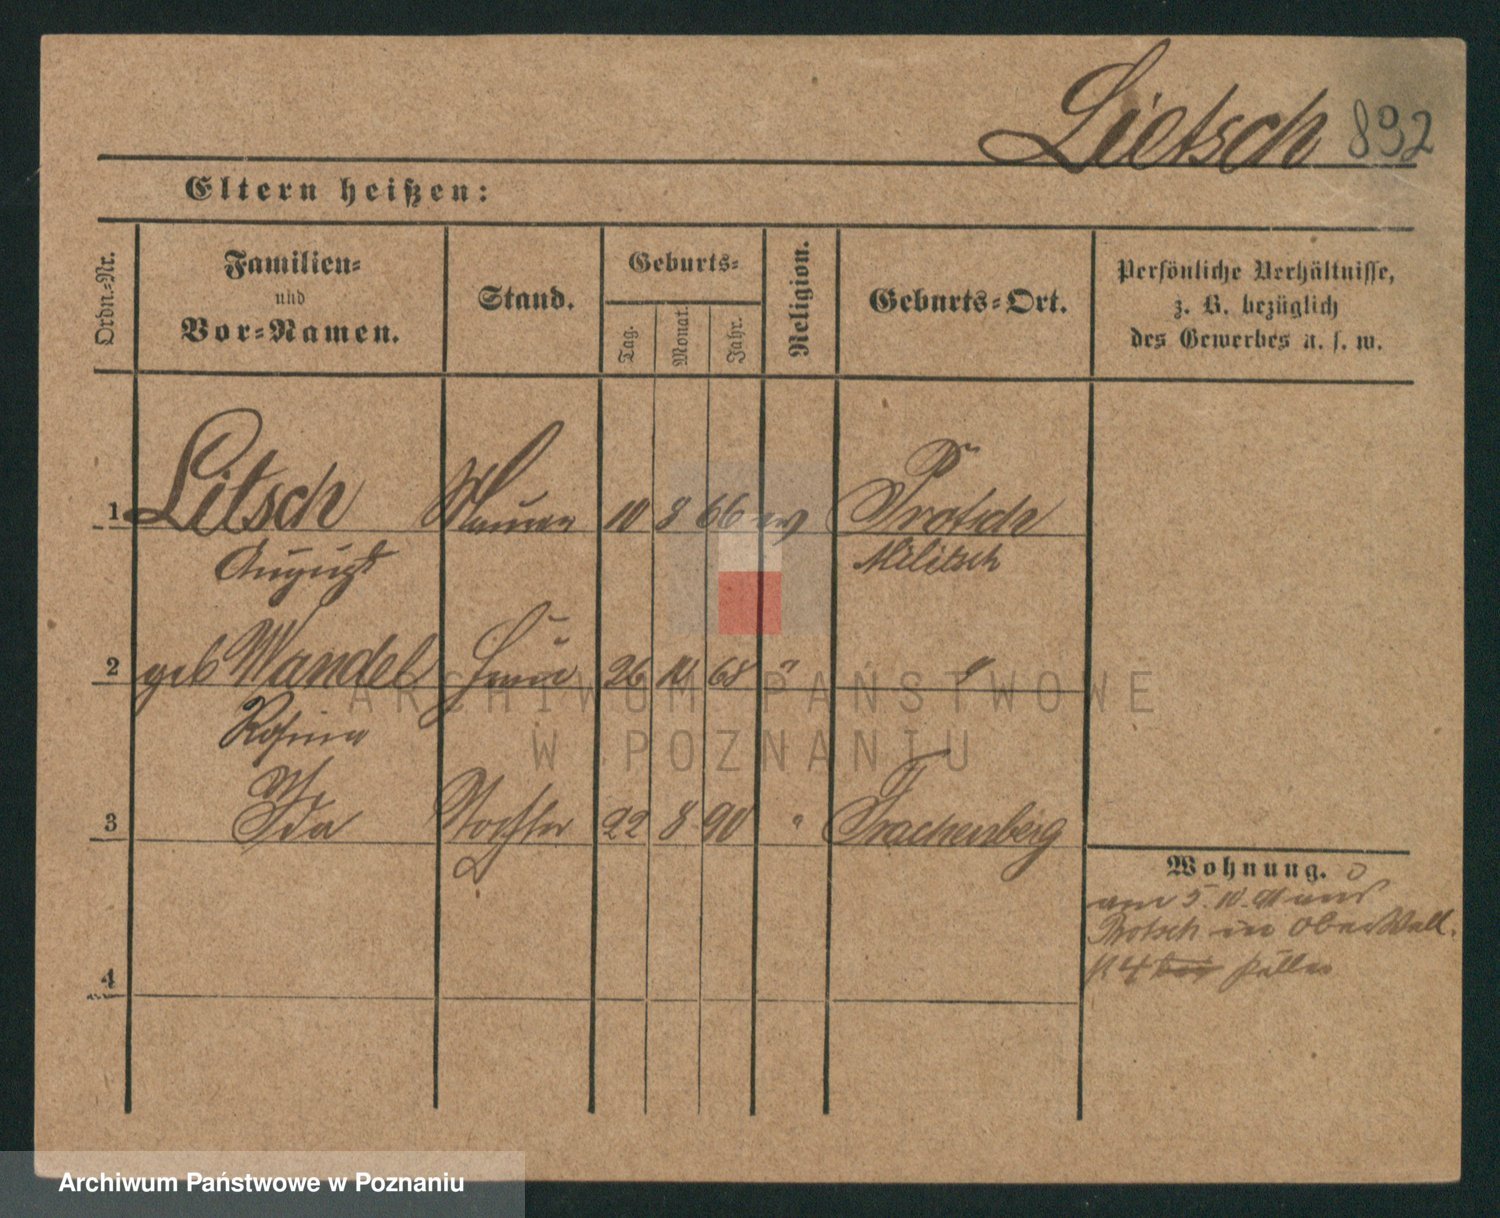 Lietsch 832
Eltern heißen:
Ordn.-Nr.
Familien-
und
Vor-Namen.
Stand.
Geburts-
Tag. Monat. Jahr.
Religion.
Geburts-Ort.
Persönliche Verhältnisse,
z. B. bezüglich
des Gewerbes u. s. w.
1 Litsch Maurer 10 8 66 ev Protsch
August Militsch
2 geb Wandel Frau 26 10 68 " "
Rosina
3 Ida Tochter 22 8 90 " Trachenberg
Wohnung.
am 5. 10. 91 aus
Protsch in Ober Wall
st. 4 bei
4
ARCHIWUM PAŃSTWOWE
W POZNANIU
Archiwum Państwowe w Poznaniu